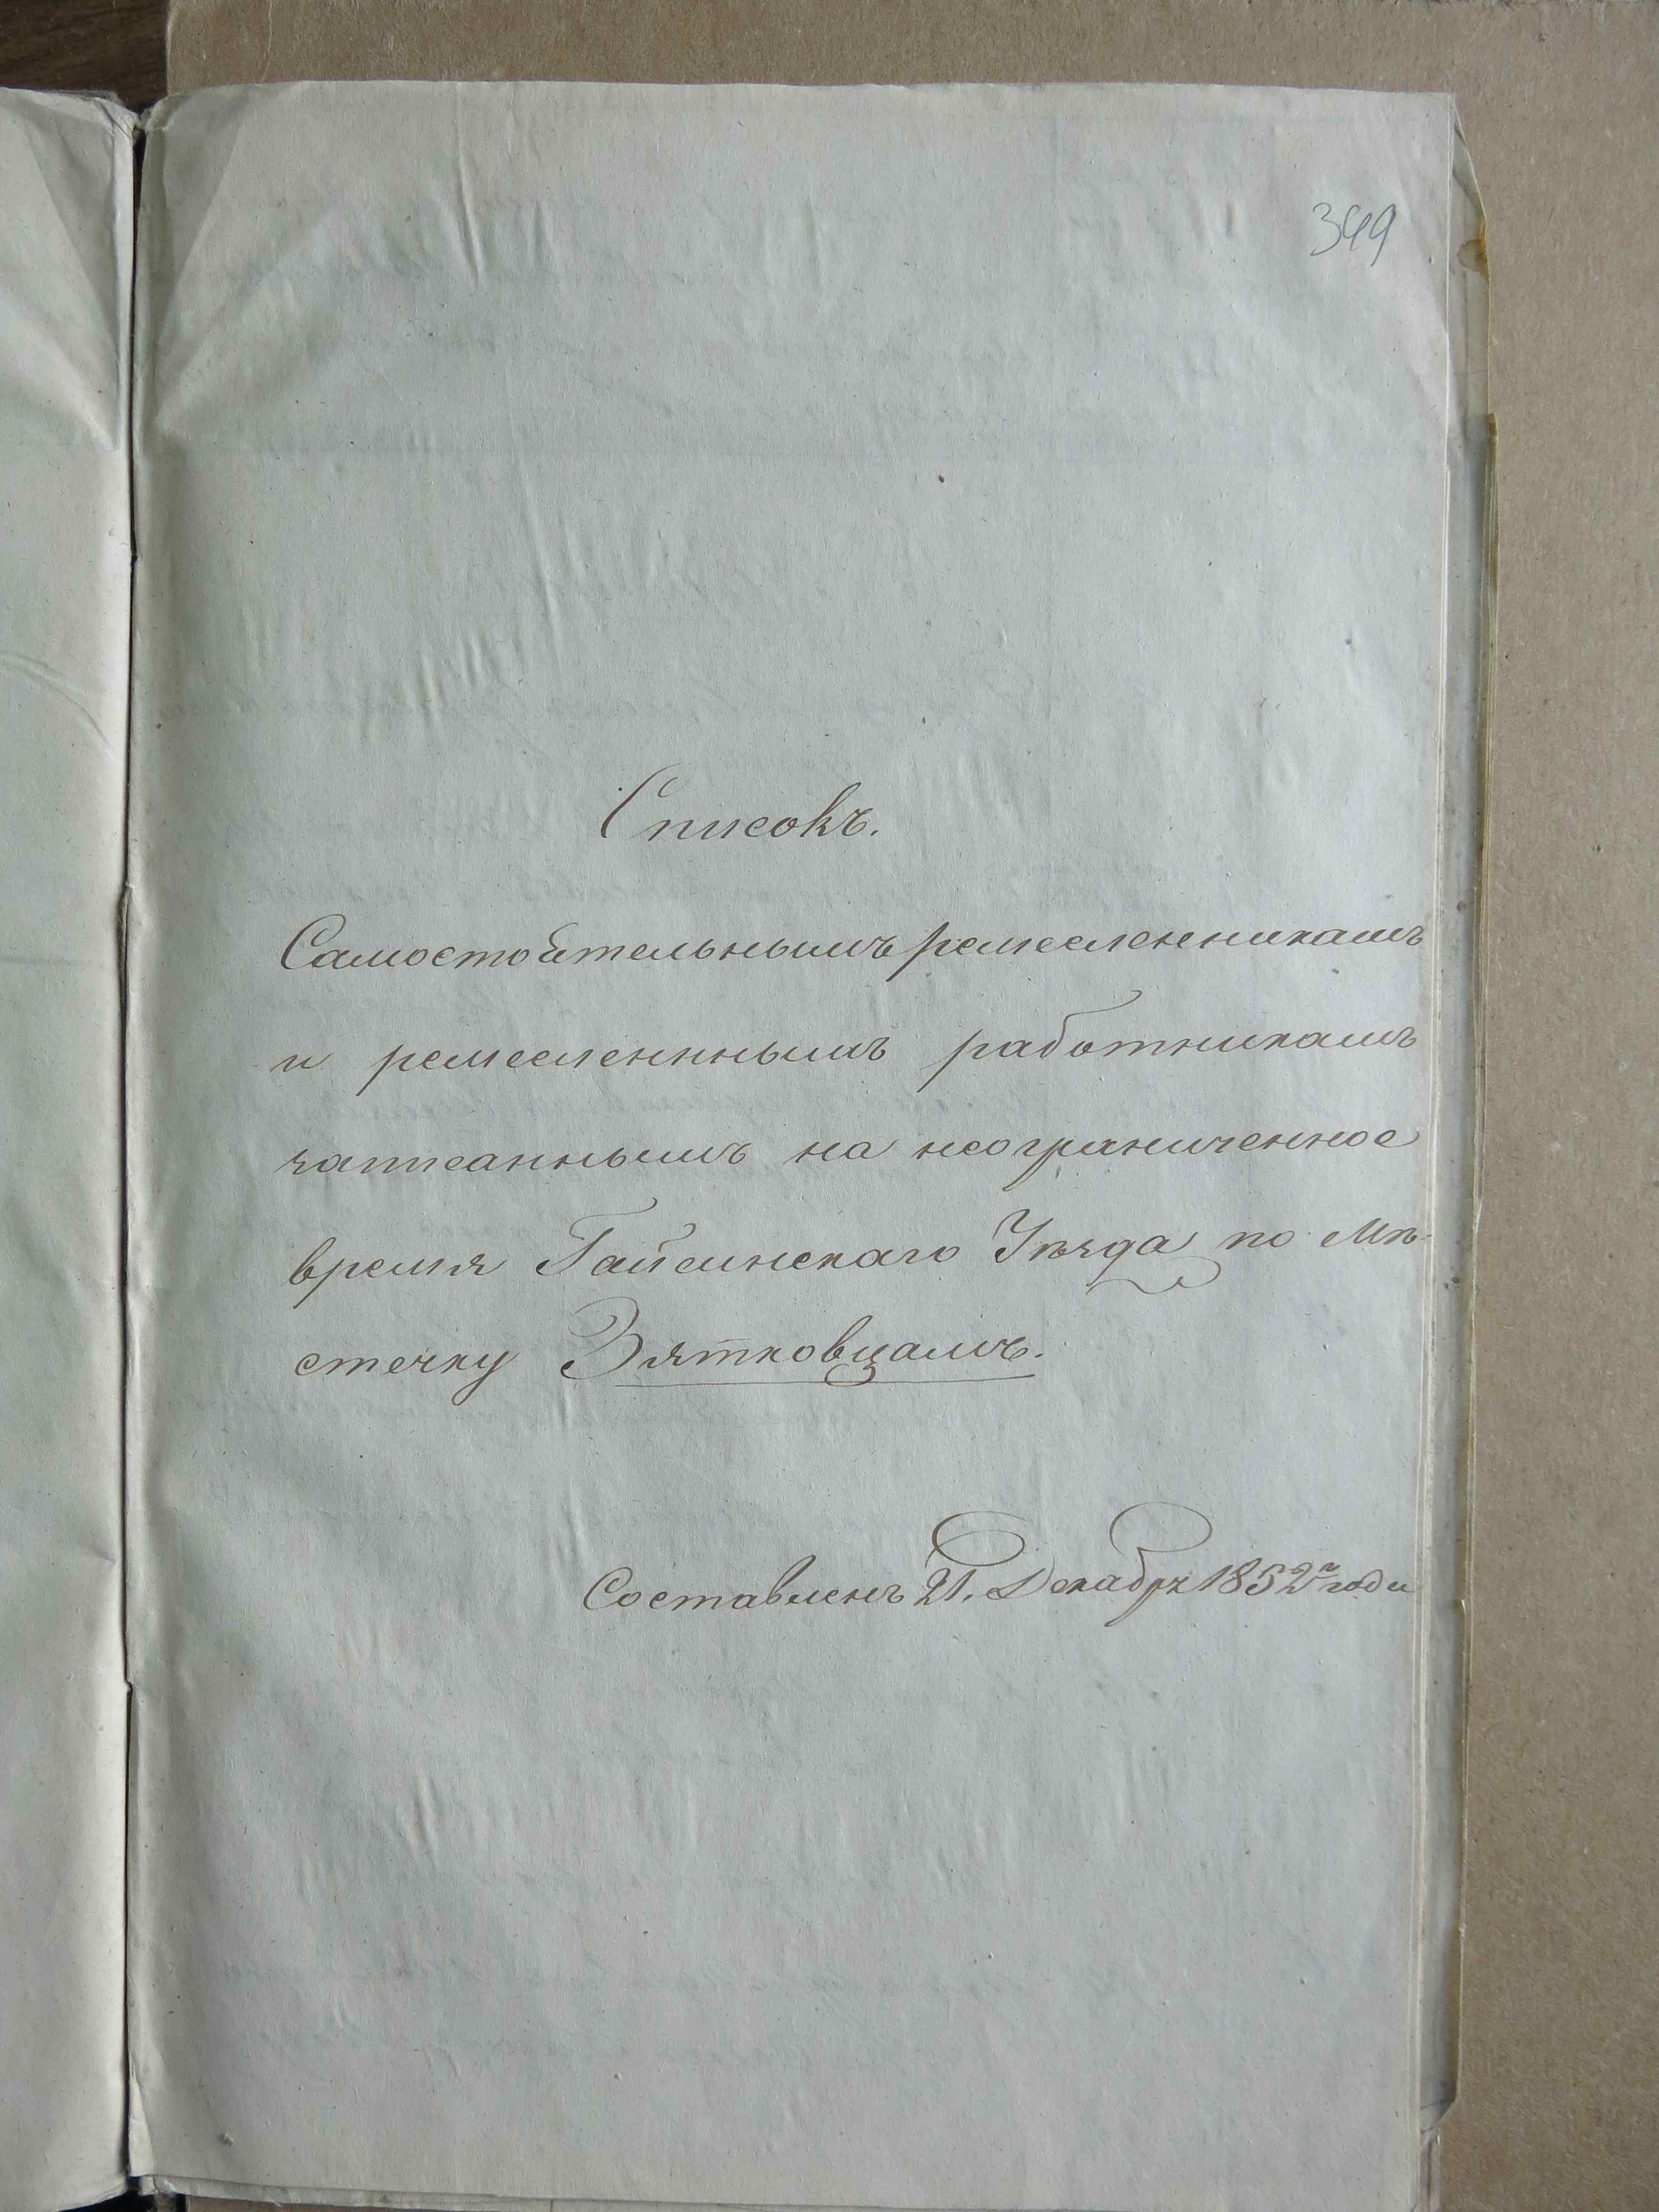 349
Списокъ.
Самостоятельнымъ ремесленникамъ
и ремесленнымъ работникамъ
записаннымъ на неограниченное
время Гайсинскаго Уѣзда по Мѣ-
стечку Зятковцамъ.
Составленъ 21. Декабря 1852го года